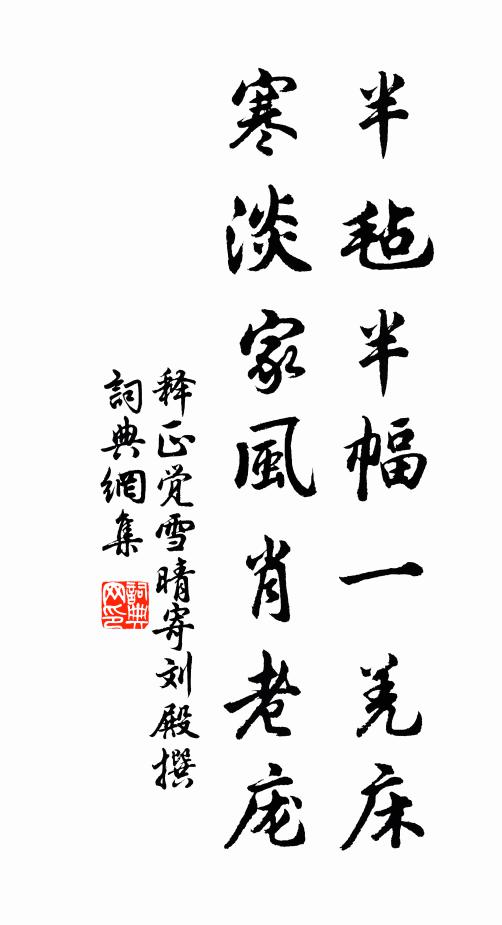 半毡半幅一羌床
寒淡家風肖老庞
释正覚雪晴寄刘殿撰
詞典網集
詞典網印